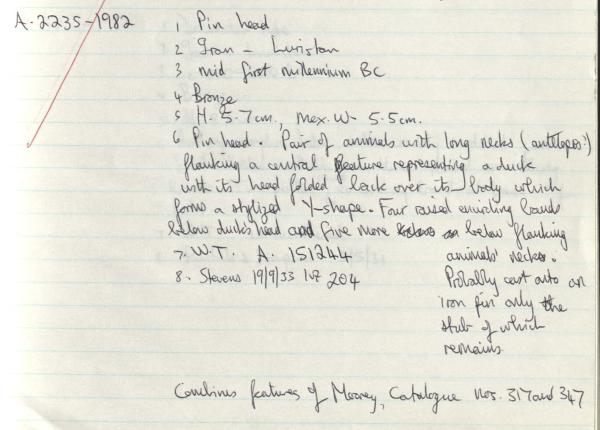 A.2235-1982
1 Pin head
2 Iran - Luristan
3 mid first millennium BC
4 Bronze
5 H. 5.7cm, max. W. 5.5cm.
6 Pin head. Pair of animals with long necks (antelopes?)
flanking a central feature representing a duck
with its head folded back over its body which
forms a stylized Y-shape. Four raised encircling bands
below ducks head and five more below flanking
animals' necks.
Probably cast onto an
iron pin only the
stub of which
remains
7. W.T. A. 151244
8. Stevens 19/9/33 lot 204
Combines features of Moorey, Catalogue Nos. 317 and 347